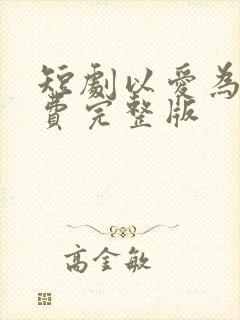 短劇以愛為
費完整版
高金敏